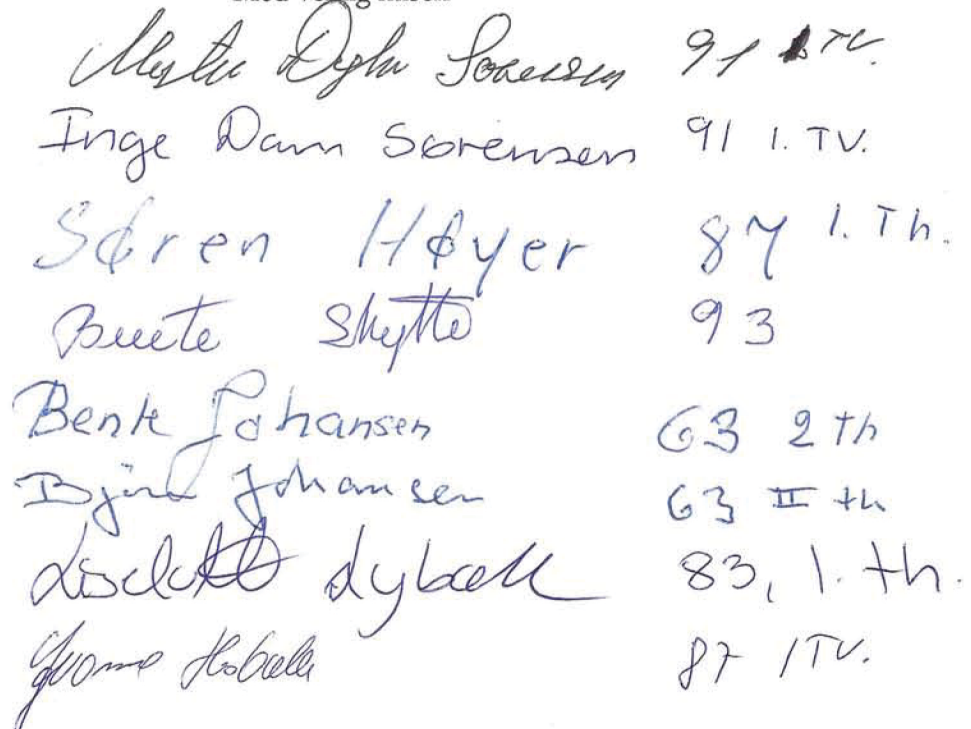 Sørensen 91 1. TV.
Inge Dam Sørensen 91 1. TV.
Søren Høyer 87 1. Th.
Bente Skytte 93
Bente Johansen 63 2 th
Bjørn Johansen 63 II th
Liselotte Lybæk 83, 1. th.
Yvonne 87 1 TV.